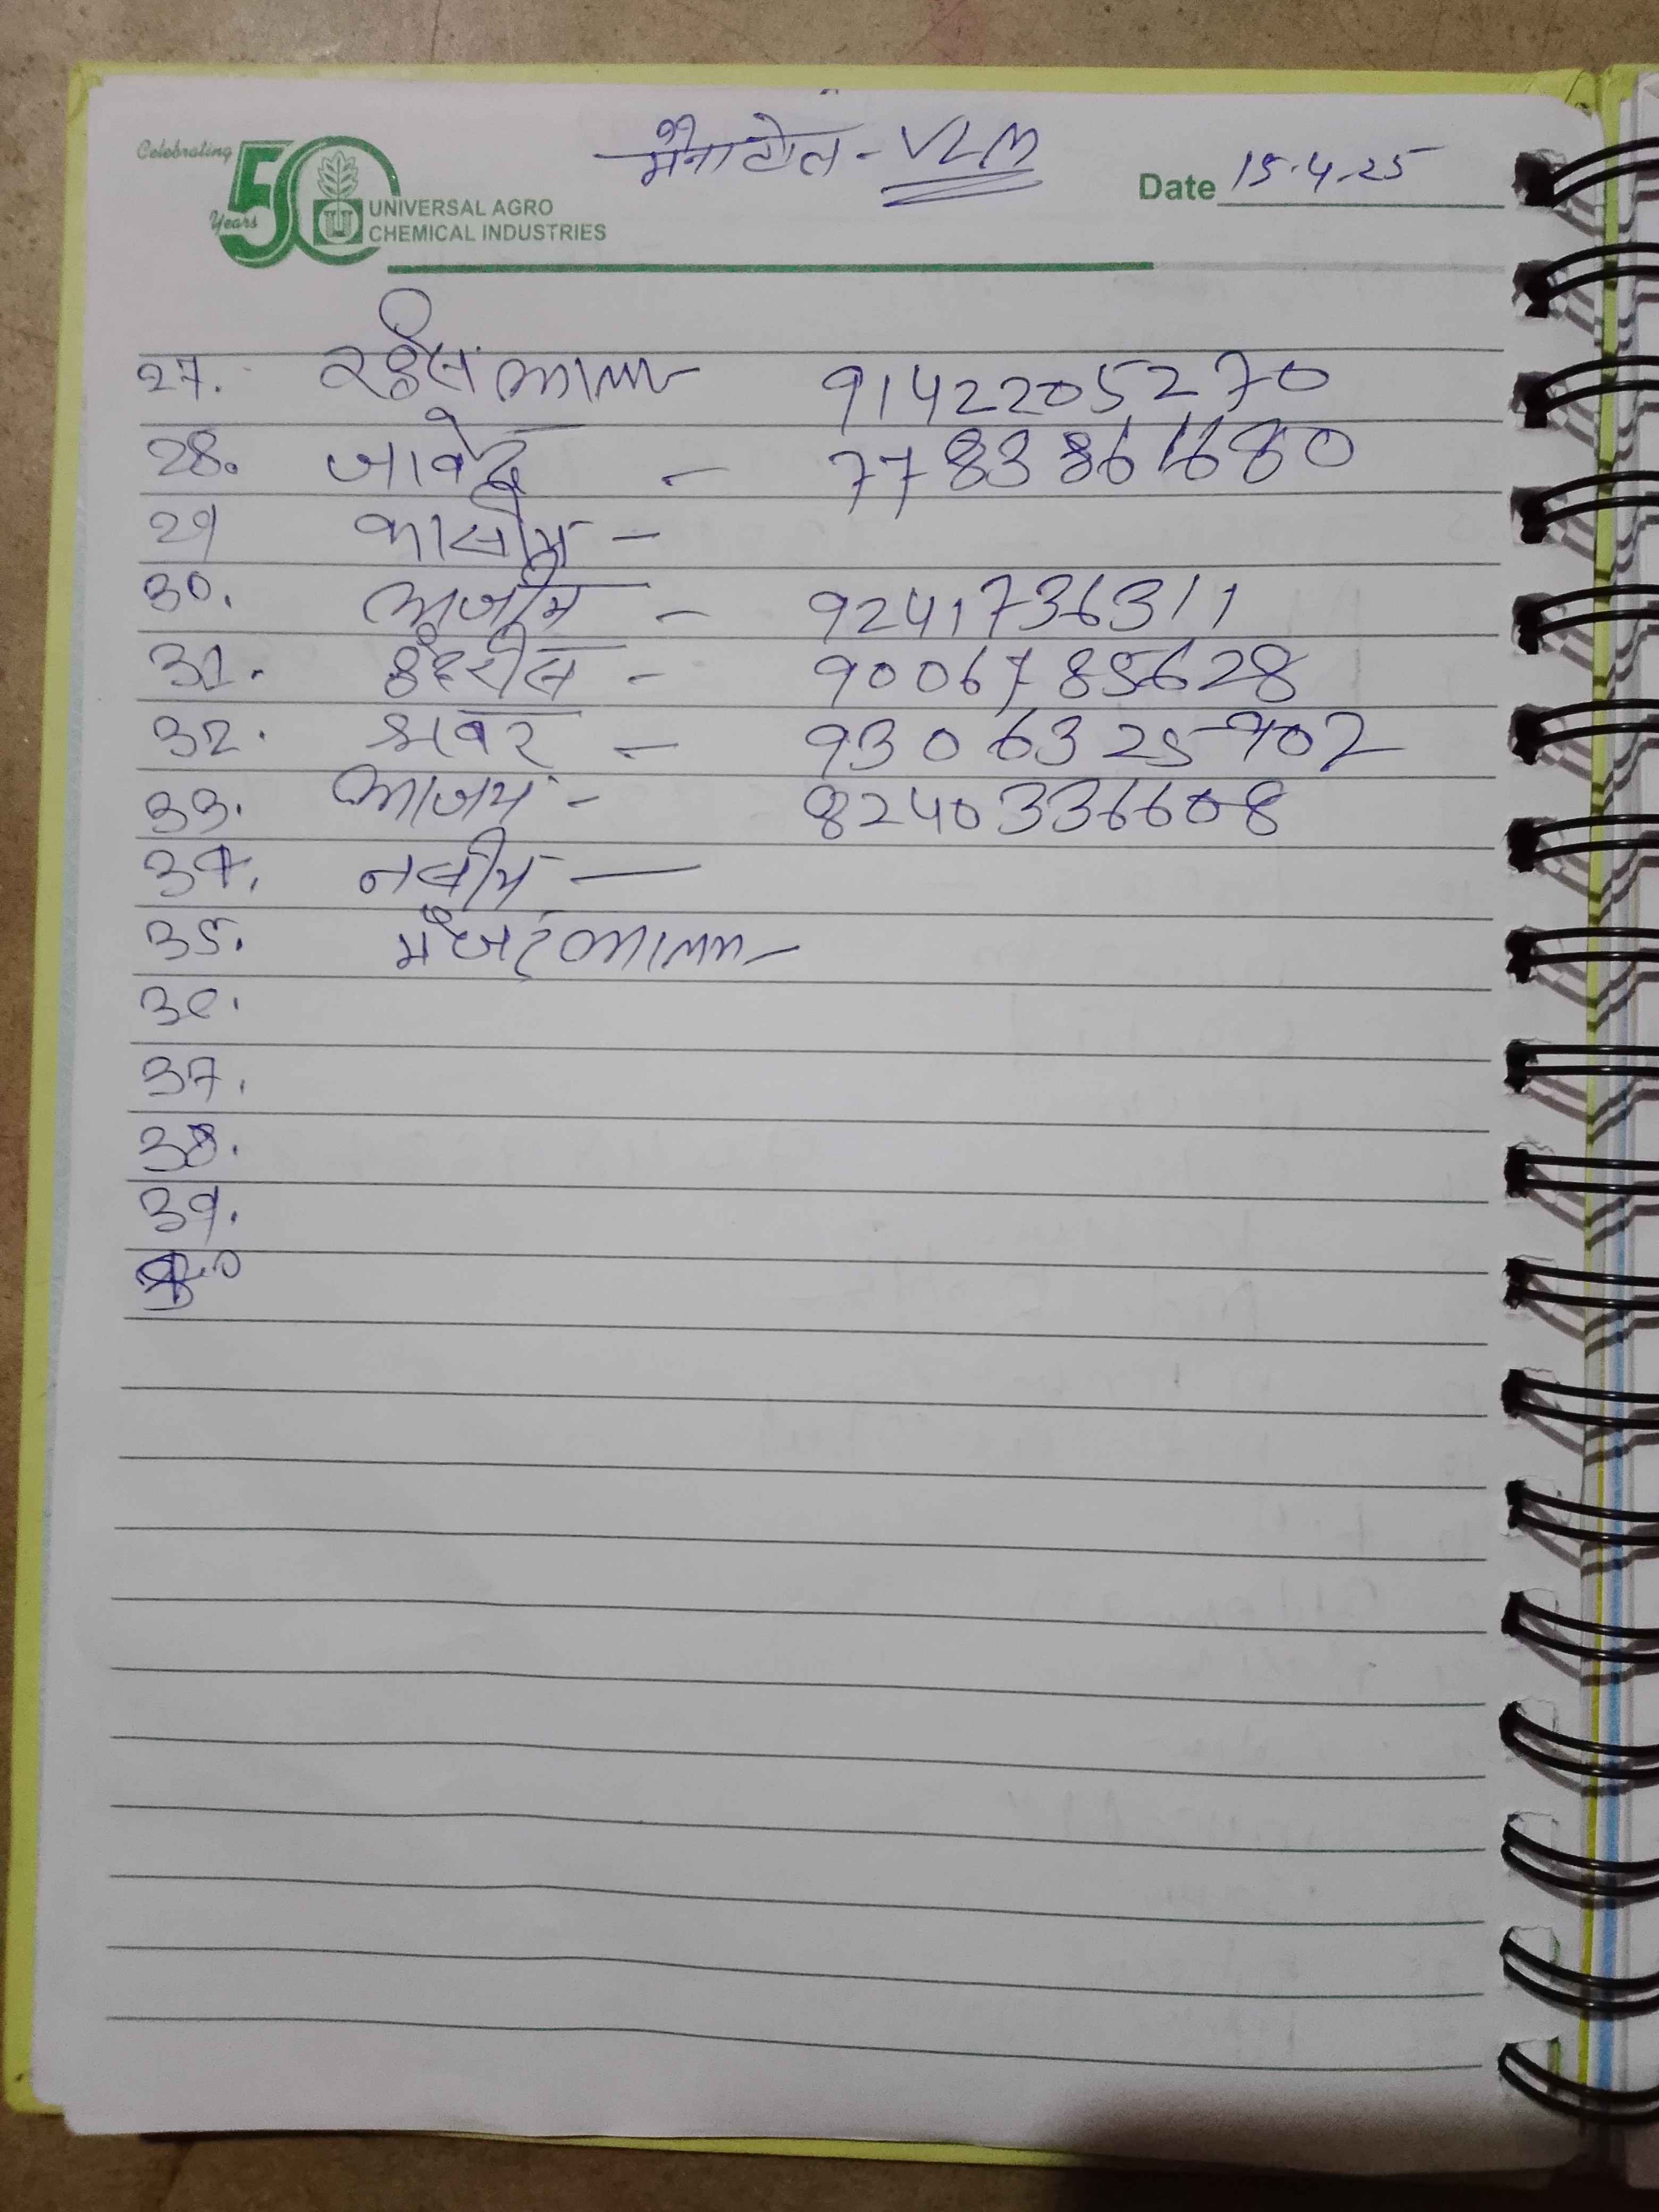 Celebrating 50 Years
UNIVERSAL AGRO
CHEMICAL INDUSTRIES
मैनाटोल - VLM
Date 15.4.25
27. आलम 9142205270
28. जावेद - 7783861680
29 कासीम -
30. आजीम - 9241736311
31. - 9006785628
32. - 9306325902
33. आजम - 8240336608
34. नसीम —
35. आलम -
36.
37.
38.
39.